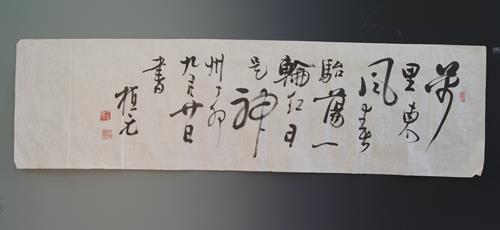 万
里东
风春
骀荡一
轮红日
是神
州丁卯
九月廿日
書
植元